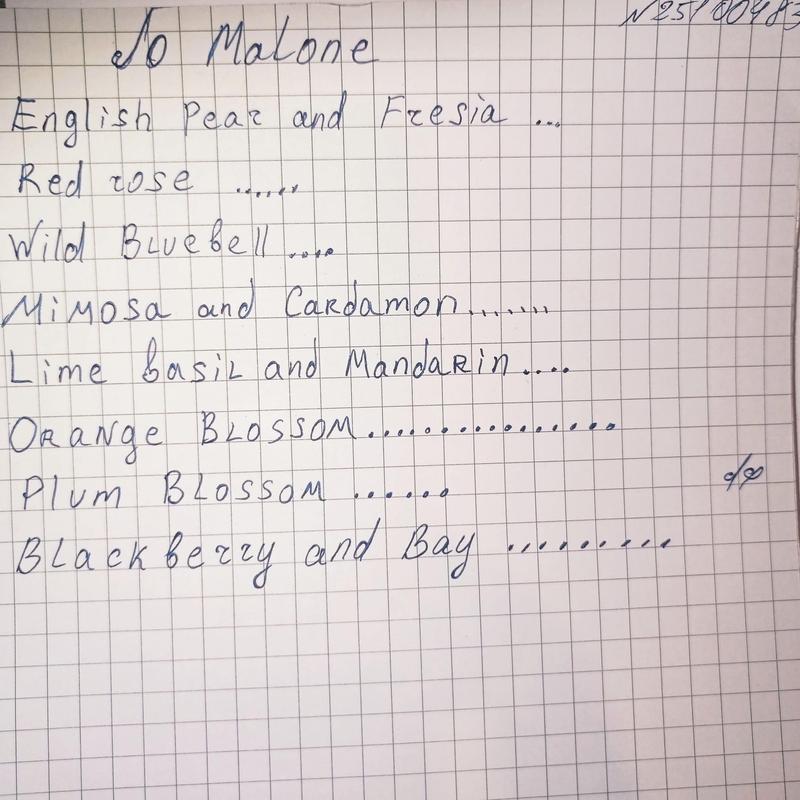 N25100483
Jo Malone
English Pear and Fresia ...
Red rose ......
Wild Bluebell ....
Mimosa and Cardamon.......
Lime basil and Mandarin....
Orange Blossom................
Plum Blossom ......
Blackberry and Bay .........